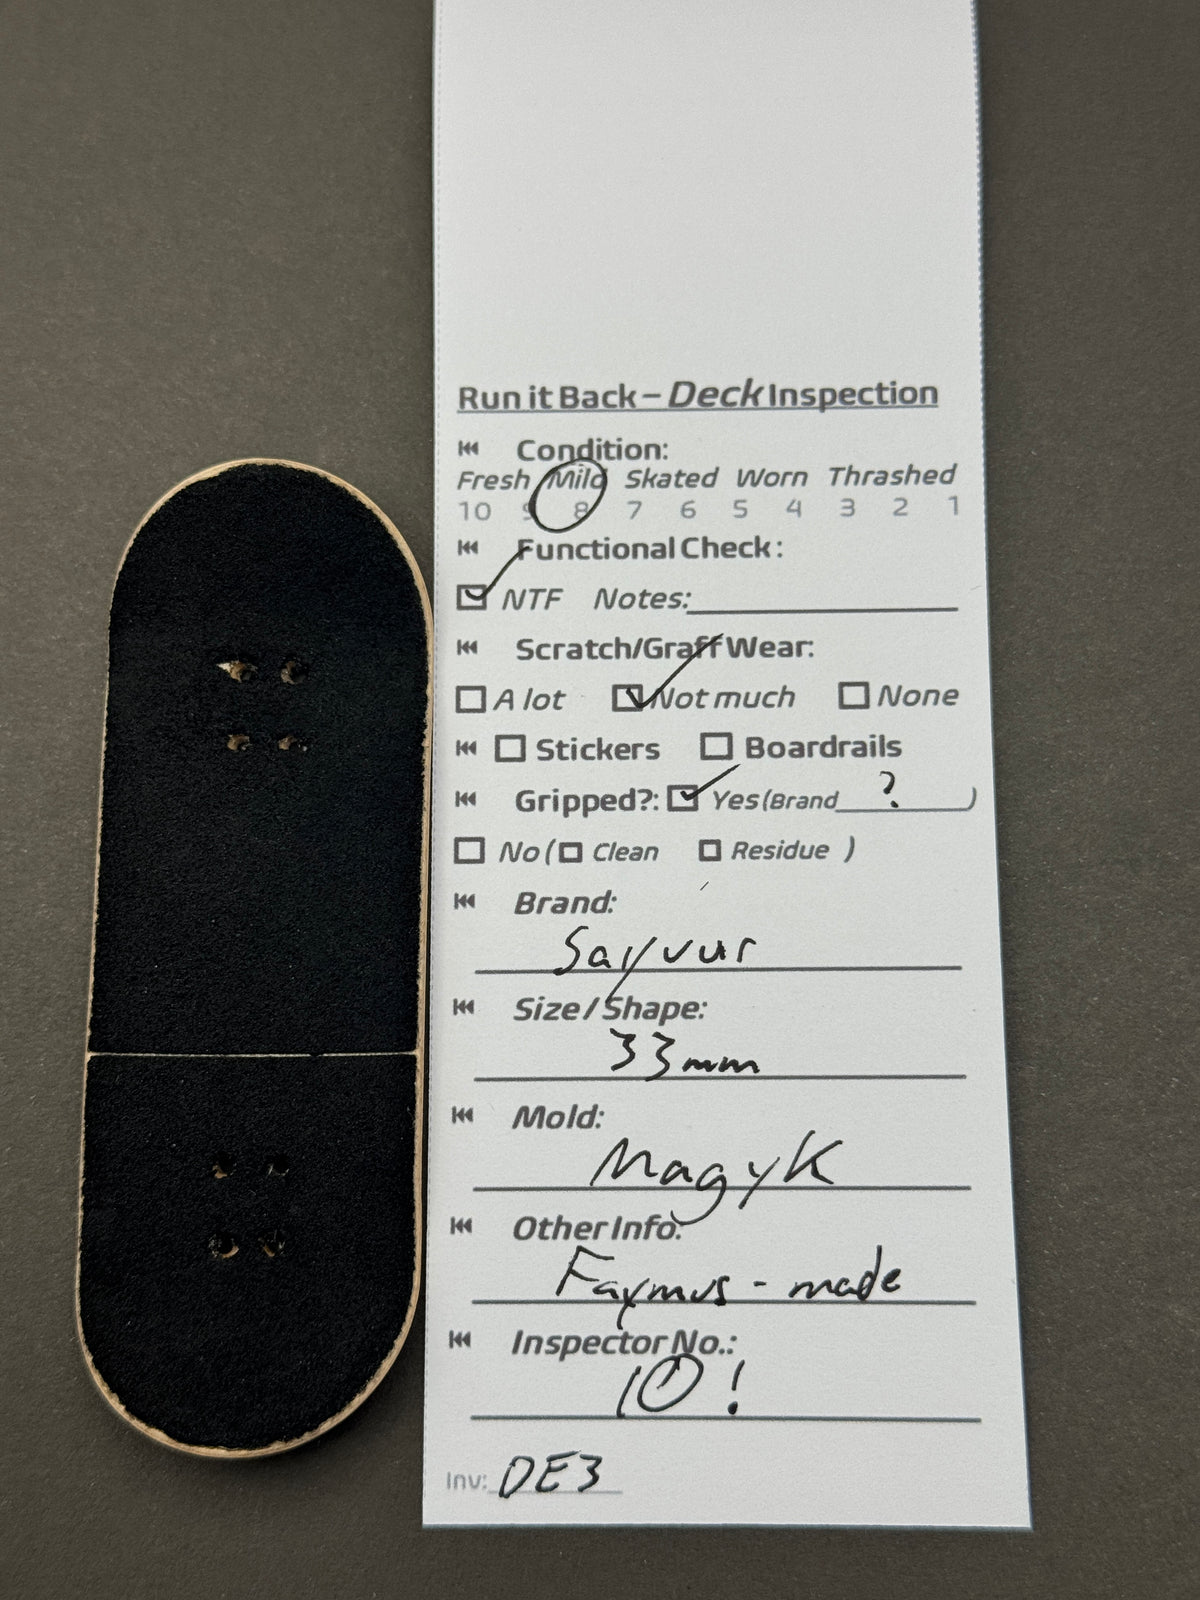 Run it Back – Deck Inspection
Condition:
Fresh Mild Skated Worn Thrashed
10 9 8 7 6 5 4 3 2 1
Functional Check:
NTF Notes:
Scratch/Graff Wear:
A lot Not much None
Stickers Boardrails
Gripped?: Yes (Brand ? )
No ( Clean Residue )
Brand:
Sayvur
Size / Shape:
33mm
Mold:
Magyk
Other Info:
Faymus - made
Inspector No.:
10!
Inv: DE3